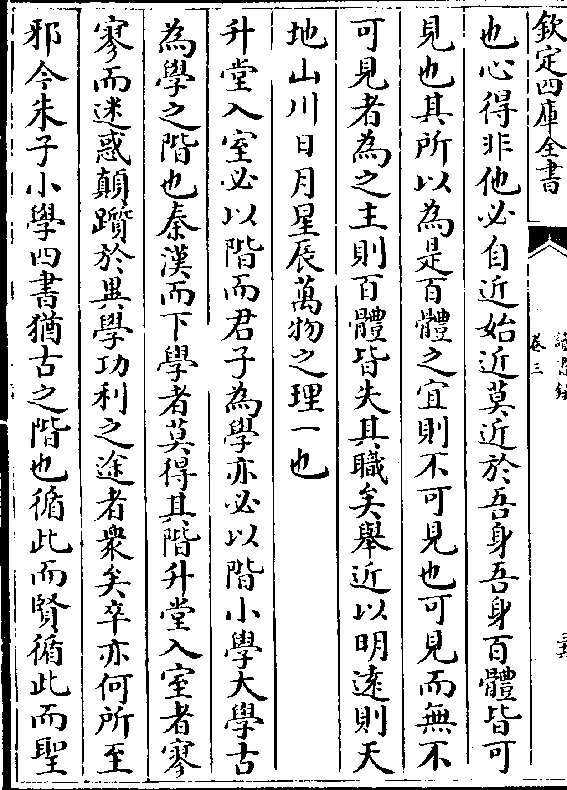 欽定四庫全書
卷三
也心得非他必自近始近莫近於吾身吾身百體皆可
見也其所以為是百體之宜則不可見也可見而無不
可見者為之主則百體皆失其職矣舉近以明遠則天
地山川日月星辰萬物之理一也
升堂入室必以階而君子為學亦必以階小學大學古
為學之階也秦漢而下學者莫得其階升堂入室者寥
寥而迷惑顛躓於異學功利之途者衆矣卒亦何所至
邪今朱子小學四書猶古之階也循此而賢循此而聖